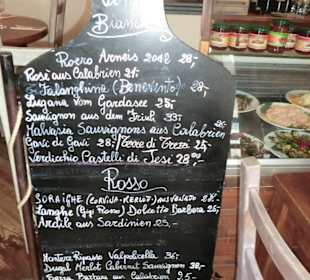 Bianchi
Roero Arneis 2012 28,-
Rosé aus Calabrien 21,-
Falanghina (Benevento) 28,-
Lugana vom Gardasee 25,-
Sauvignon aus dem Friul 33,-
Malvasia Sauvignons aus Calabrien
Gavi di Gavi 28,- / Terre di Trezzi 25,-
Verdicchio Castelli di Jesi 28,-
Rosso
SORAIGHE (CORVINA-MERLOT) aus Veneto
Langhe (Gigi Rosso) Dolcetto Barbera 25,-
Ardile aus Sardinien 25,-
Ripasso Valpolicella
Merlot Cabernet Sauvignon
Barbara aus Calabrien